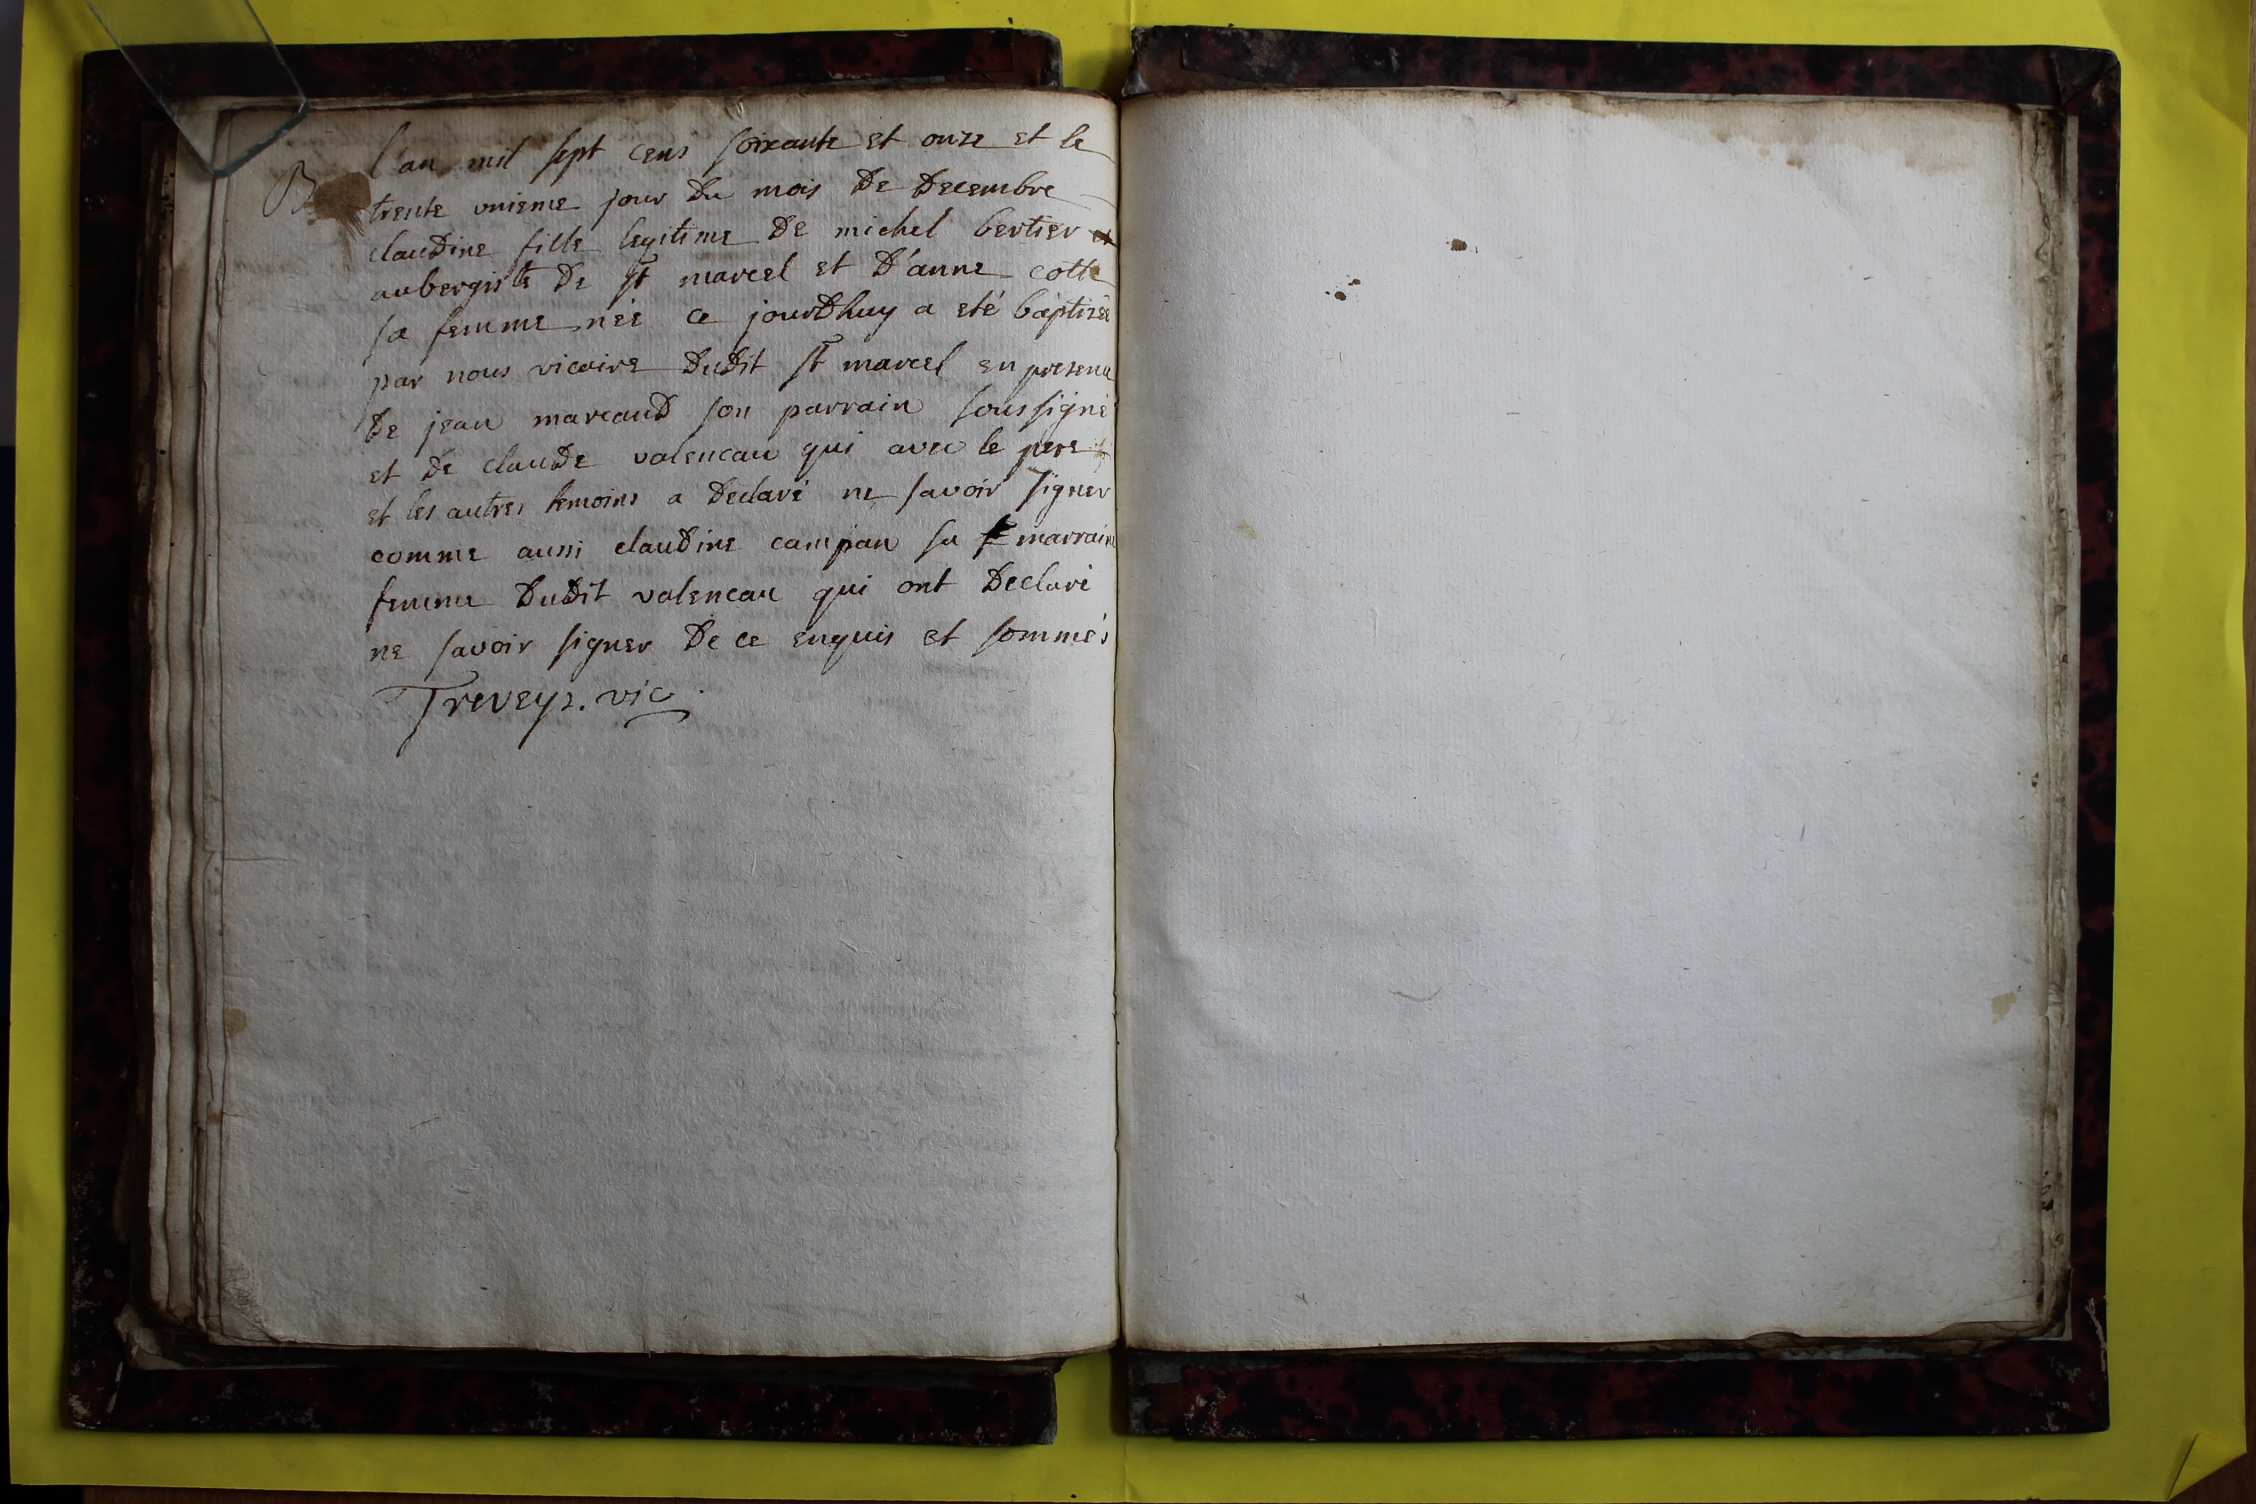 B
l'an mil sept cens soixante et onze et le
trente unieme jour du mois de decembre
claudine fille legitime de michel bertier
aubergiste de st marcel et d'anne cotte
sa femme née ce jourdhuy a eté baptizée
par nous vicaire dudit st marcel en presence
de jean marcaud son parrain soussigné
et de claude valencau qui avec le pere
et les autres temoins a declaré ne savoir signer
comme aussi claudine campan sa marraine
femme dudit valencau qui ont declaré
ne savoir signer de ce enquis et sommés
Treveys. vic